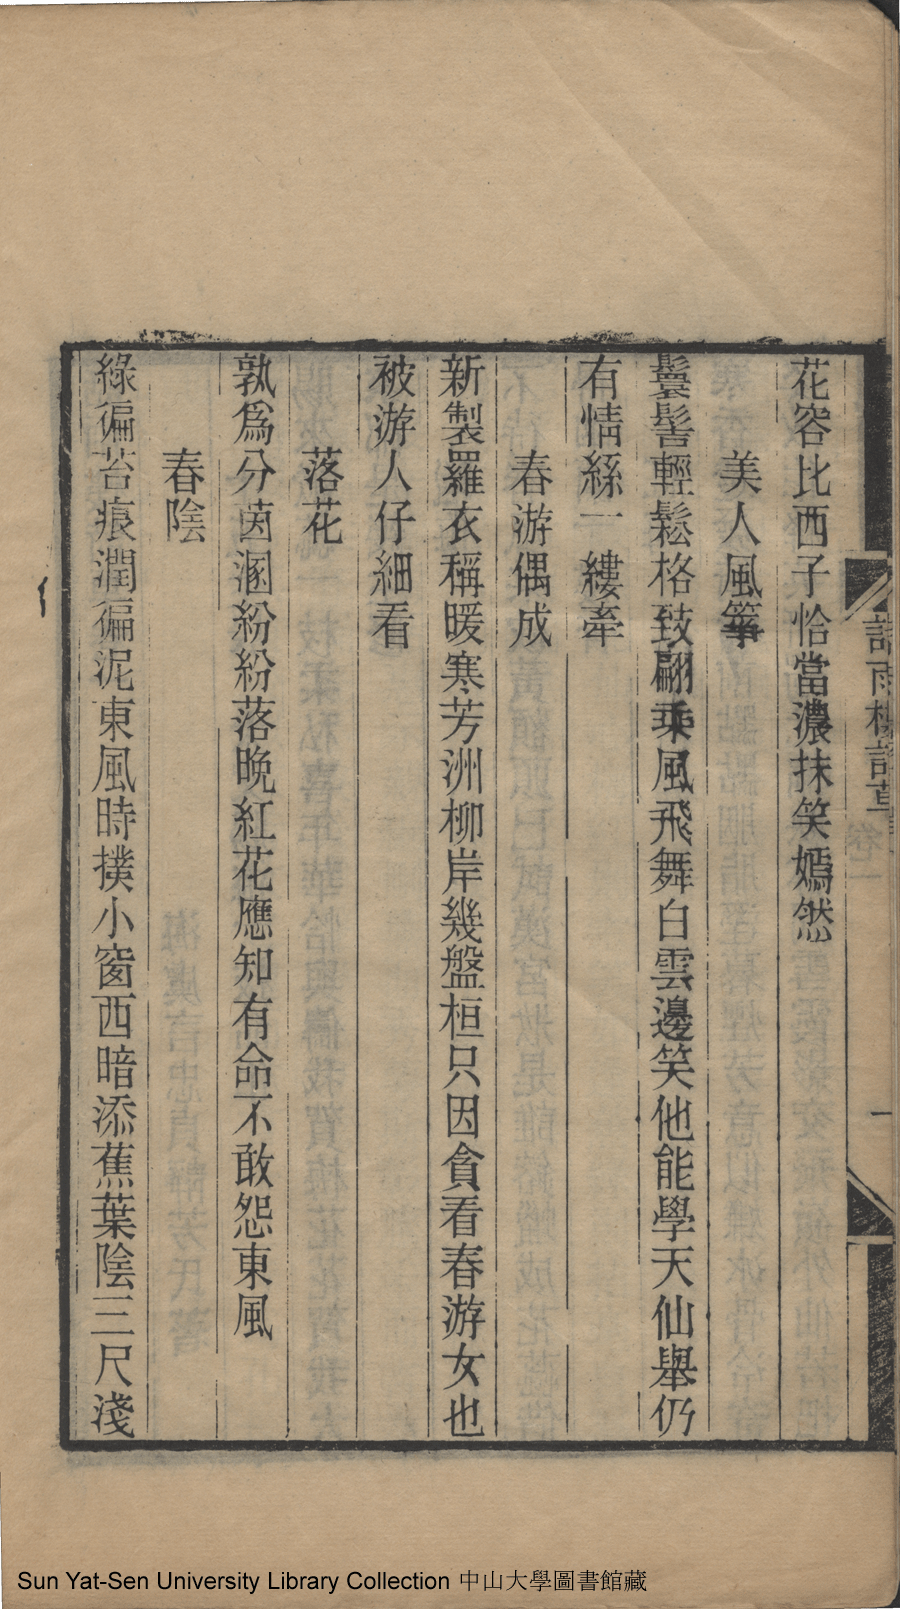 花容比西子恰當濃抹笑嫣然
美人風箏
鬟髻輕鬆格致翩乘風飛舞白雲邊笑他能學天仙舉仍
有情絲一縷牽
春游偶成
新製羅衣稱暖寒芳洲柳岸幾盤桓只因貪看春游女也
被游人仔細看
落花
孰爲分茵溷紛紛落晚紅花應知有命不敢怨東風
春陰
綠徧苔痕潤徧泥東風時撲小窗西暗添蕉葉陰三尺淺
雨樓詩草
卷一
一
Sun Yat-Sen University Library Collection 中山大學圖書館藏